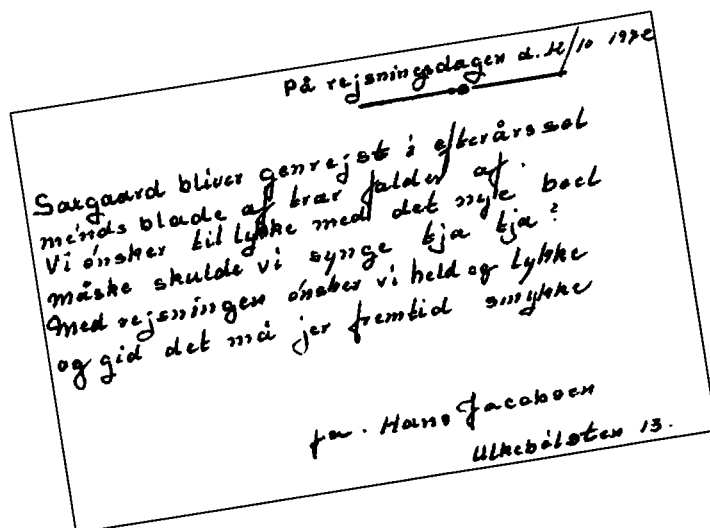 På rejsningsdagen d. 12/10 1972
Sargaard bliver genrejst i efterårssol
mens blade af træer falder af.
Vi ønsker til lykke med det nye boel
måske skulde vi synge tja tja?
Med rejsningen ønsker vi held og lykke
og gid det må jer fremtid smykke
fa. Hans Jacobsen
Ulkebølsten 13.